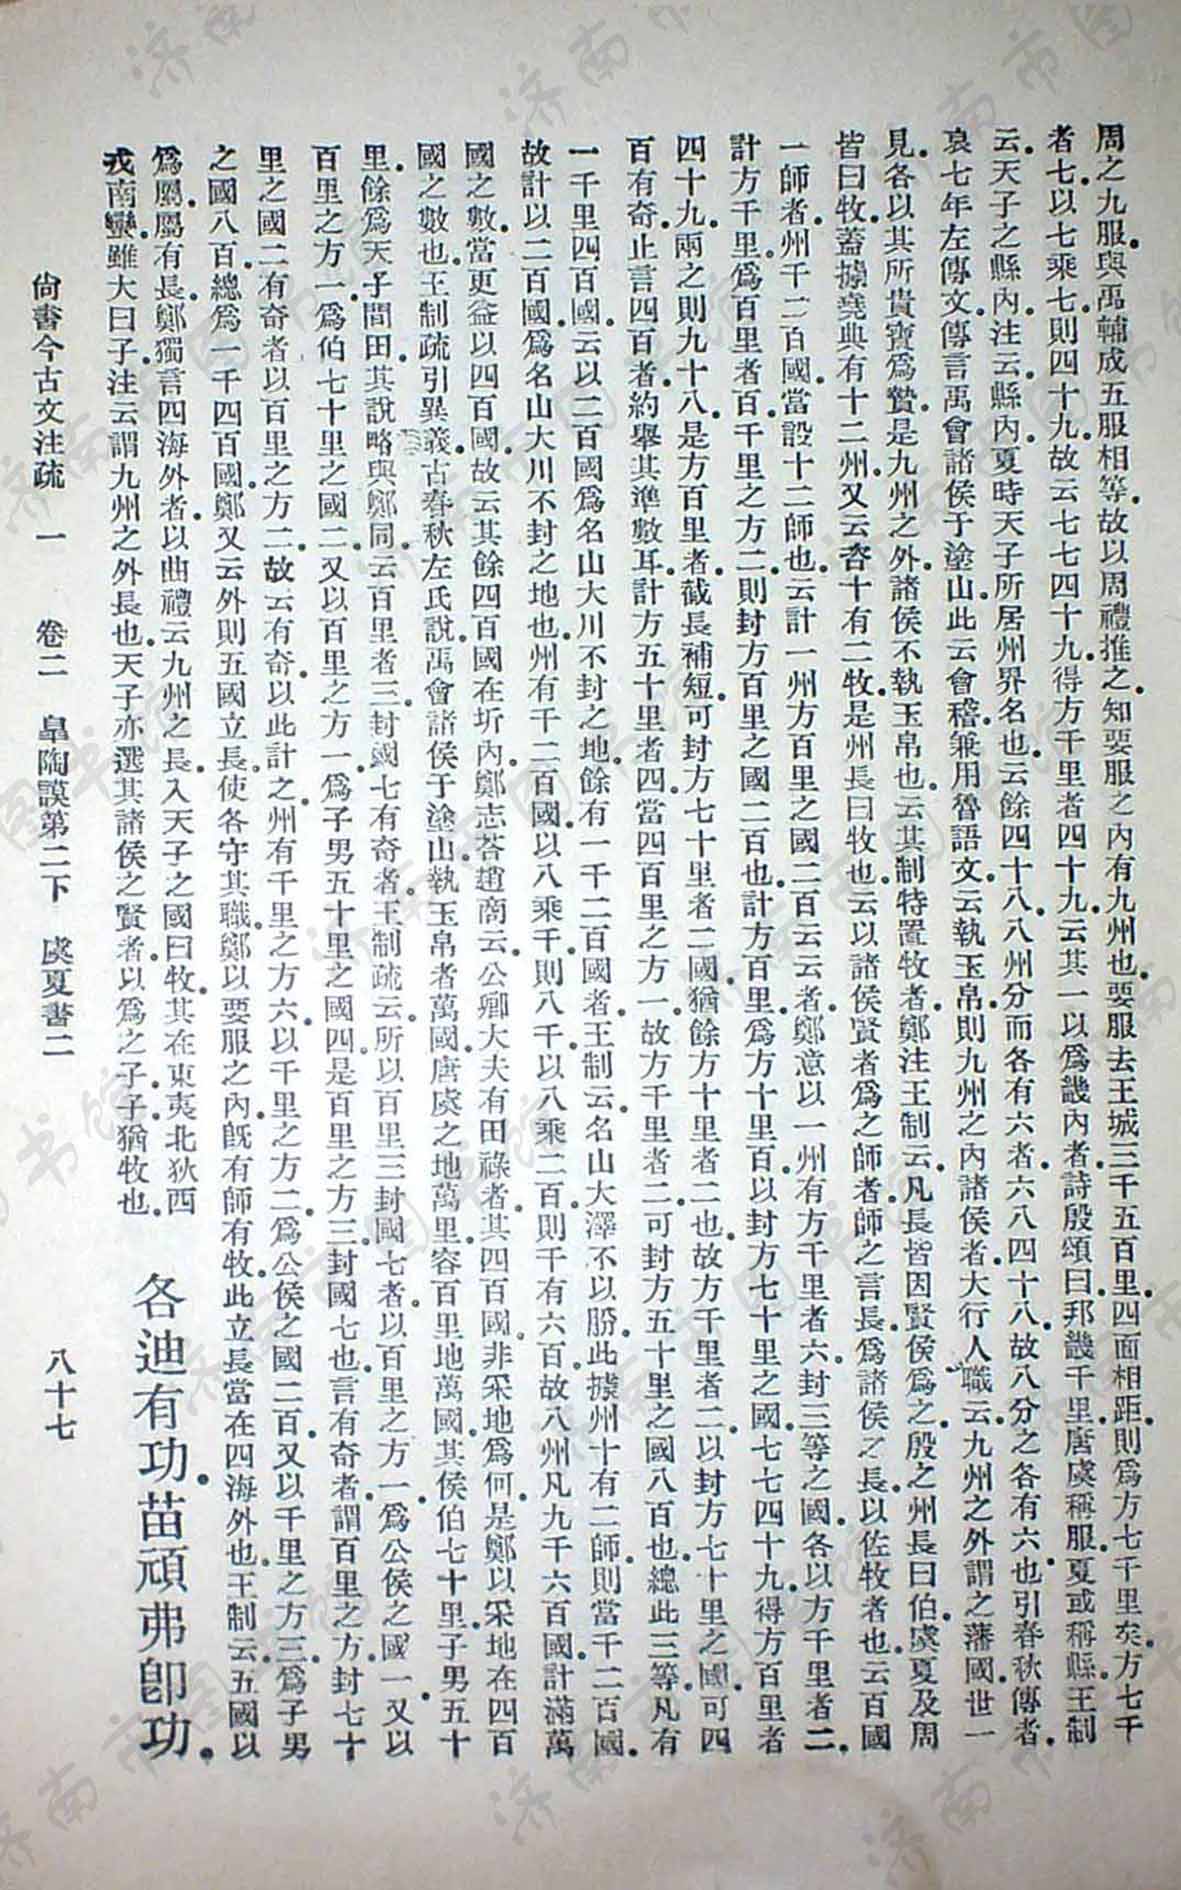 周之九服與禹輔成五服相等故以周禮推之知要服之內有九州也要服去王城三千五百里四面相距則爲方七千里矣方七千
者七以七乘七則四十九故云七七四十九得方千里者四十九云其一以爲畿內者詩殷頌曰邦畿千里唐虞稱服夏或稱縣王制
云天子之縣內注云縣內夏時天子所居州界名也云餘四十八八州分而各有六者六八四十八故八分之各有六也引春秋傳者
哀七年左傳文傳言禹會諸侯于塗山此云會稽兼用魯語文云執玉帛則九州之內諸侯者大行人職云九州之外謂之藩國世一
見各以其所貴寶爲贄是九州之外諸侯不執玉帛也云其制特置牧者鄭注王制云凡長皆因賢侯爲之殷之州長曰伯虞夏及周
皆曰牧蓋據堯典有十二州又云咨十有二牧是州長曰牧也云以諸侯賢者爲之師者師之言長爲諸侯之長以佐牧者也云百國
一師者州千二百國當設十二師也云計一州方百里之國二百云云者鄭意以一州有方千里者六封三等之國各以方千里者二
計方千里爲百里者百千里之方二則封方百里之國二百也計方百里爲方十里百以封方七十里之國七七四十九得方百里者
四十九兩之則九十八是方百里者截長補短可封方七十里者二國猶餘方十里者二也故方千里者二以封方七十里之國可四
百有奇止言四百者約舉其準數耳計方五十里者四當四百里之方一故方千里者二可封方五十里之國八百也總此三等凡有
一千里四百國云以二百國爲名山大川不封之地餘有一千二百國者王制云名山大澤不以朌此據州十有二師則當千二百國
故計以二百國爲名山大川不封之地也州有千二百國以八乘千則八千以八乘二百則千有六百故八州凡九千六百國計滿萬
國之數當更益以四百國故云其餘四百國在圻內鄭志荅趙商云公卿大夫有田祿者其四百國非采地爲何是鄭以采地在四百
國之數也王制疏引異義古春秋左氏說禹會諸侯于塗山執玉帛者萬國唐虞之地萬里容百里地萬國其侯伯七十里子男五十
里餘爲天子閒田其說略與鄭同云百里者三封國七有奇者王制疏云所以百里三封國七者以百里之方一爲公侯之國一又以
百里之方一爲伯七十里之國二又以百里之方一爲子男五十里之國四是百里之方三封國七也言有奇者謂百里之方封七十
里之國二有奇者以百里之方二故云有奇以此計之州有千里之方六以千里之方二爲公侯之國二百又以千里之方三爲子男
之國八百總爲一千四百國鄭又云外則五國立長使各守其職鄭以要服之內既有師有牧此立長當在四海外也王制云五國以
爲屬屬有長鄭獨言四海外者以曲禮云九州之長入天子之國曰牧其在東夷北狄西
戎南蠻雖大曰子注云謂九州之外長也天子亦選其諸侯之賢者以爲之子子猶牧也
各迪有功苗頑弗卽功
尙書今古文注疏 一 卷二 皐陶謨第二下 虞夏書二 八十七